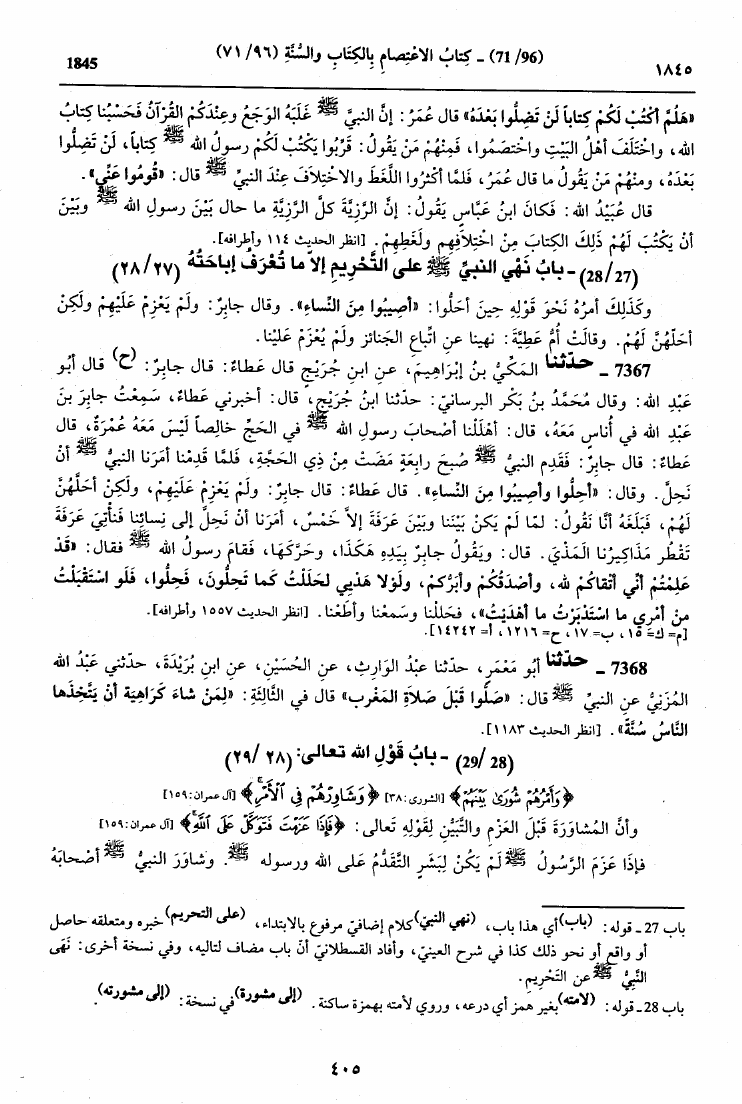 1845 (71/96) ـ كِتابُ الاعْتِصامِ بِالكِتَابِ والسُّنَّةِ (٧١/٩٦) ١٨٤٥
«هَلُمَّ أكْتُبْ لَكُمْ كِتاباً لَنْ تَضِلُّوا بَعْدَهُ» قال عُمَرُ: إنَّ النبيَّ ﷺ غَلَبَهُ الوَجَعُ وعِنْدَكُمُ القُرْآنُ فَحَسْبُنا كِتابُ
الله، واخْتَلَفَ أهْلُ البَيْتِ واخْتَصَمُوا، فَمِنْهُمْ مَنْ يَقُولُ: قَرِّبُوا يَكْتُبْ لَكُمْ رسولُ الله ﷺ كِتاباً، لَنْ تَضِلُّوا
بَعْدَهُ، ومنْهُمْ مَنْ يَقُولُ ما قال عُمَرُ، فَلمَّا أكْثَرُوا اللَّغَطَ والاخْتِلافَ عِنْدَ النبيِّ ﷺ قال: «قُومُوا عَنِّي».
قال عُبَيْدُ الله: فَكانَ ابنُ عَبَّاسٍ يَقُولُ: إنَّ الرَّزِيَّةَ كلَّ الرَّزِيَّةِ ما حال بَيْنَ رسولِ الله ﷺ وبَيْنَ
أنْ يَكْتُبَ لَهُمْ ذلِكَ الكِتابَ مِنْ اخْتِلافِهِم ولَغَطِهِمْ. [انظر الحديث ١١٤ وأطرافه].
(28/27) ـ بابُ نَهْيِ النبيِّ ﷺ على التَّحْرِيمِ إلاَّ ما تُعْرَفُ إباحَتُهُ (٢٨/٢٧)
وكَذَلِكَ أمْرُهُ نَحْوَ قَوْلِهِ حِينَ أحَلُّوا: «أصِيبُوا مِنَ النِّساءِ». وقال جابِرٌ: ولَمْ يَعْزِمْ عَلَيْهِمْ ولَكِنْ
أحَلَّهُنَّ لَهُمْ. وقالَتْ أُمُّ عَطِيَّةَ: نهينا عنِ اتِّباعِ الجَنائزِ ولَمْ يُعْزَمْ عَلَيْنا.
7367 ـ حدّثنا المَكِّيُّ بنُ إبْرَاهِيمَ، عنِ ابنِ جُرَيْجٍ قال عَطاءٌ: قال جابِرٌ: (ح) قال أبُو
عَبْدِ الله: وقال مُحَمَّدُ بنُ بَكْر البرسانيّ: حدّثنا ابنُ جُرَيْجٍ، قال: أخبرني عَطاءٌ، سَمِعْتُ جابِرَ بنَ
عَبْدِ الله في أُناسٍ مَعَهُ، قال: أهْلَلْنا أصْحابَ رسولِ الله ﷺ في الحَجِّ خالِصاً لَيْسَ مَعَهُ عُمْرَةٌ، قال
عَطاءٌ: قال جابِرٌ: فَقَدِم النبيُّ ﷺ صُبحَ رابِعَةٍ مَضَتْ مِنْ ذِي الحَجَّةِ، فَلَمَّا قَدِمْنا أمَرَنا النبيُّ ﷺ أنْ
نَحِلَّ. وقال: «أحِلُّوا وأصِيبُوا مِنَ النِّساءِ». قال عَطاءٌ: قال جابِرٌ: ولَمْ يَعْزِمْ عَلَيْهِمْ، ولَكِنْ أحَلَّهُنَّ
لَهُمْ، فَبَلَغَهُ أنَّا نَقُولُ: لمّا لَمْ يَكُنْ بَيْنَنا وبَيْنَ عَرَفَةَ إلاَّ خَمْسٌ، أمَرَنا أنْ نَحِلَّ إلى نِسائِنا فَنَأتِيَ عَرَفَةَ
تَقْطُر مَذَاكِيرُنا المَذْيَ. قال: ويَقُولُ جابِرٌ بِيَدِهِ هَكَذَا، وحَرَّكَها، فَقامَ رسولُ الله ﷺ فقال: «قَدْ
عَلِمْتُمْ أنِّي أتْقاكُمْ لله، وأصْدَقُكُمْ وأبَرُّكُمْ، ولَوْلا هَدْيِي لحَلَلْتُ كما تَحِلُّونَ، فَحِلُّوا، فَلَو اسْتَقْبَلْتُ
مِنْ أمْرِي ما اسْتَدْبَرْتُ ما أهْدَيْتُ»، فحَلَلْنا وسَمِعْنا وأطَعْنا. [انظر الحديث ١٥٥٧ وأطرافه].
[م= ك= ١٥، ب= ١٧، ح= ١٢١٦، أ= ١٤٢٤٢].
7368 ـ حدّثنا أبُو مَعْمَرٍ، حدّثنا عبْدُ الوَارِثِ، عنِ الحُسَيْنِ، عنِ ابنِ بُرَيْدَةَ، حدّثني عبْدُ الله
المُزَنِيُّ عنِ النبيِّ ﷺ قال: «صَلُّوا قَبْلَ صَلاةِ المَغْربِ» قال في الثَّالِثَةِ: «لِمَنْ شاءَ كَرَاهِيَةَ أنْ يَتَّخِذَها
النَّاسُ سُنَّةً». [انظر الحديث ١١٨٣].
(29/28) ـ بابُ قَوْلِ الله تعالى: (٢٩/٢٨)
﴿وَأَمْرُهُمْ شُورَىٰ بَيْنَهُمْ﴾ [الشورى: ٣٨] ﴿وَشَاوِرْهُمْ فِي ٱلْأَمْرِ﴾ [آل عمران: ١٥٩]
وأنَّ المُشاوَرَةَ قَبْلَ العَزْمِ والتَّبَيُّنِ لِقَوْلِهِ تَعالى: ﴿فَإِذَا عَزَمْتَ فَتَوَكَّلْ عَلَى ٱللَّهِ﴾ [آل عمران: ١٥٩]
فإذَا عَزَمَ الرَّسُولُ ﷺ لَمْ يَكُنْ لِبَشَرٍ التَّقَدُّمُ على الله ورسولِه ﷺ. وشاوَرَ النبيُّ ﷺ أصْحابَهُ
باب 27 ـ قوله: (باب) أي هذا باب، (نهي النبيّ) كلام إضافيّ مرفوع بالابتداء، (على التحريم) خبره ومتعلقه حاصل
أو واقع أو نحو ذلك كذا في شرح العينيّ، وأفاد القسطلانيّ أنّ باب مضاف لتاليه، وفي نسخة أخرى: نَهَى
النَّبِيُّ ﷺ عن التَحْرِيمِ.
باب 28 ـ قوله: (لامته) بغير همز أي درعه، وروي لأمته بهمزة ساكنة. (إلى مشورة) في نسخة: (إلى مشورته).
٤٠٥